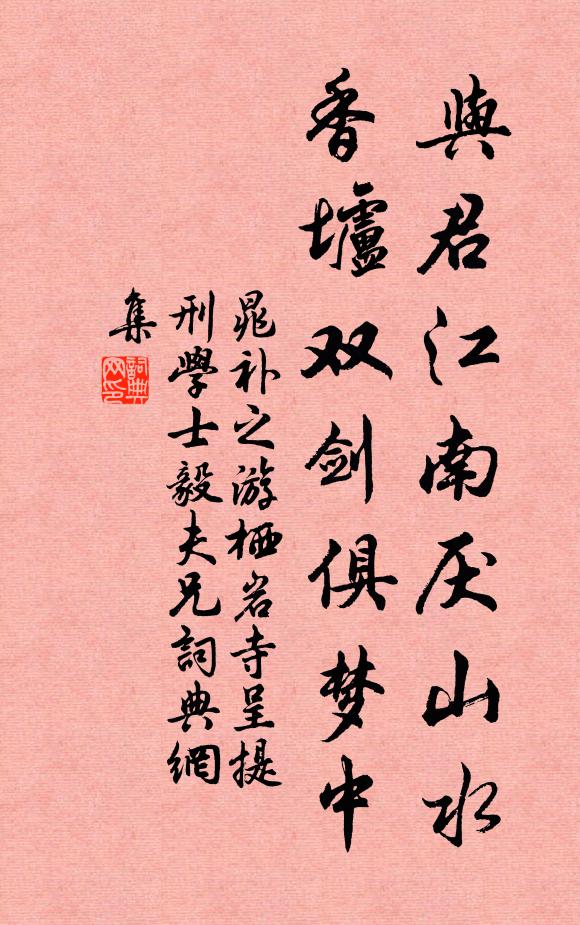 與君江南厌山水
香壚双剑俱梦中
晁补之游栖岩寺呈提
刑學士毅夫兄詞典網
集
詞典
网印